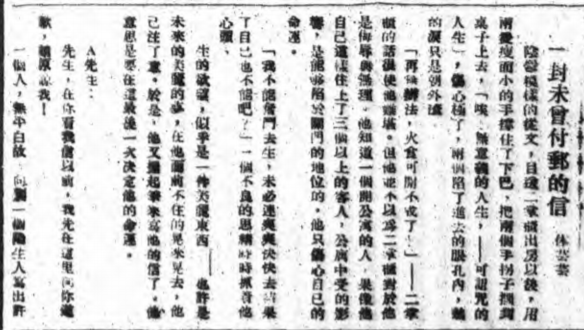 一封未曾付郵的信
休芸芸
陰鬱模樣的從文，目送二掌櫃出房以後，用
兩隻瘦而小的手撐住了下巴，把兩個手拐子擱到
桌子上去，「唉！無意義的人生，——可詛咒的
人生」，傷心極了，兩個陷了進去的眼孔內，熱
的淚只是朝外滾。
「再無辦法，火食可開不成了！」——二掌
櫃的話很使他難堪，但他並不以爲二掌櫃對於他
是侮辱與無理。他知道一個開公寓的人，果像他
自己這樣住上了三個以上的客人，公寓中受的影
響，是能夠陷於關門的地位的。他只傷心自己的
命運。
「我不能奮鬥去生，未必連爽爽快快去結果
了自己也不能吧？」一個不良的思緒時時抓着他
心頭。
生的欲望，似乎是一件美麗東西——也許是
未來的美麗的夢，在他面前不住的晃來晃去，他
已注了意。於是，他又握起筆來寫他的信了。他
意思是要在這最後一次決定他的命運。
A先生：
先生，在你看我信以前，我先在這里向你道
歉，請原諒我！
一個人，無平白故向別一個陌生人寫出許